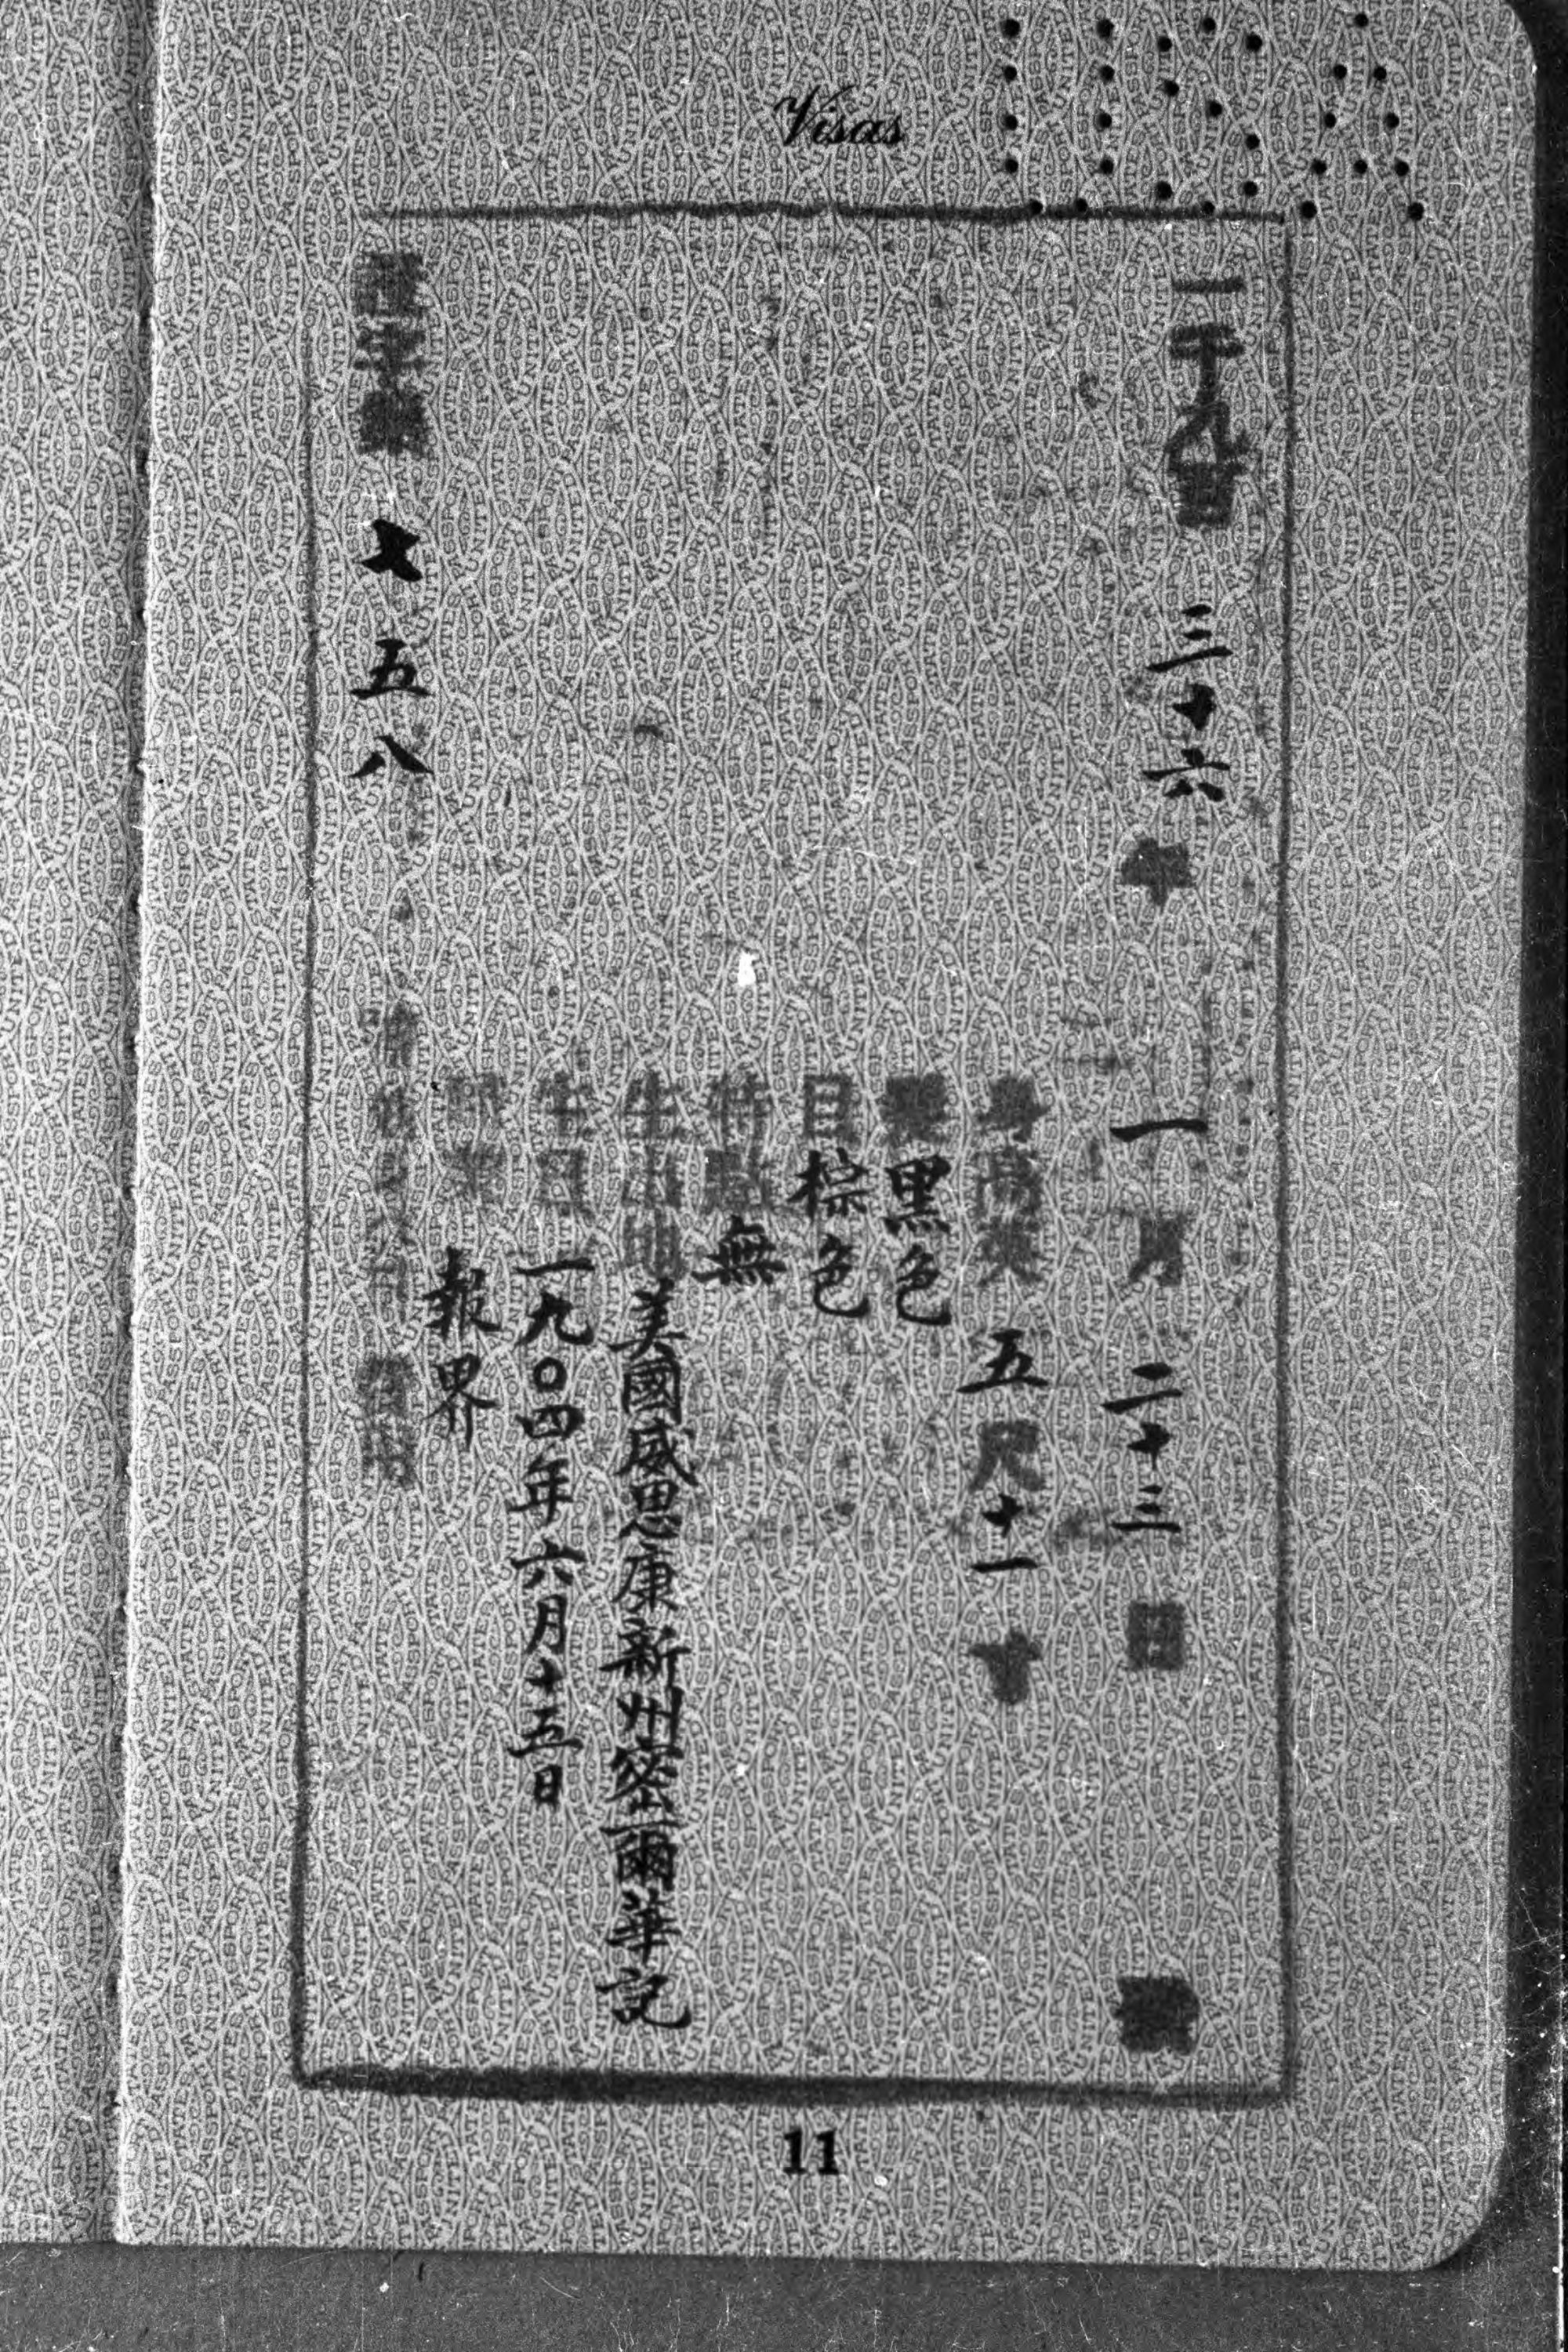 Visas
一千九百三十六年一月二十三日
身高英五尺十一寸
髮黑色
目棕色
特誌無
生出地美國威思康新州密爾華記
生日一九〇四年六月十五日
職業報界
護字第七五八
11